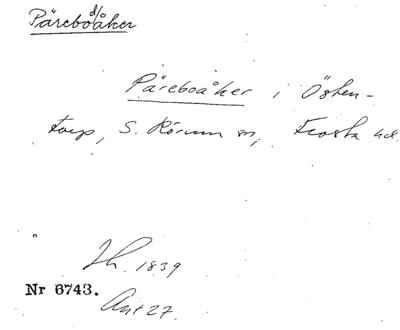 Päreboåker
Päreboåker i Östen-
torp, S. Rörum sn, Frosta hd.
1839
Nr 6743.
27.